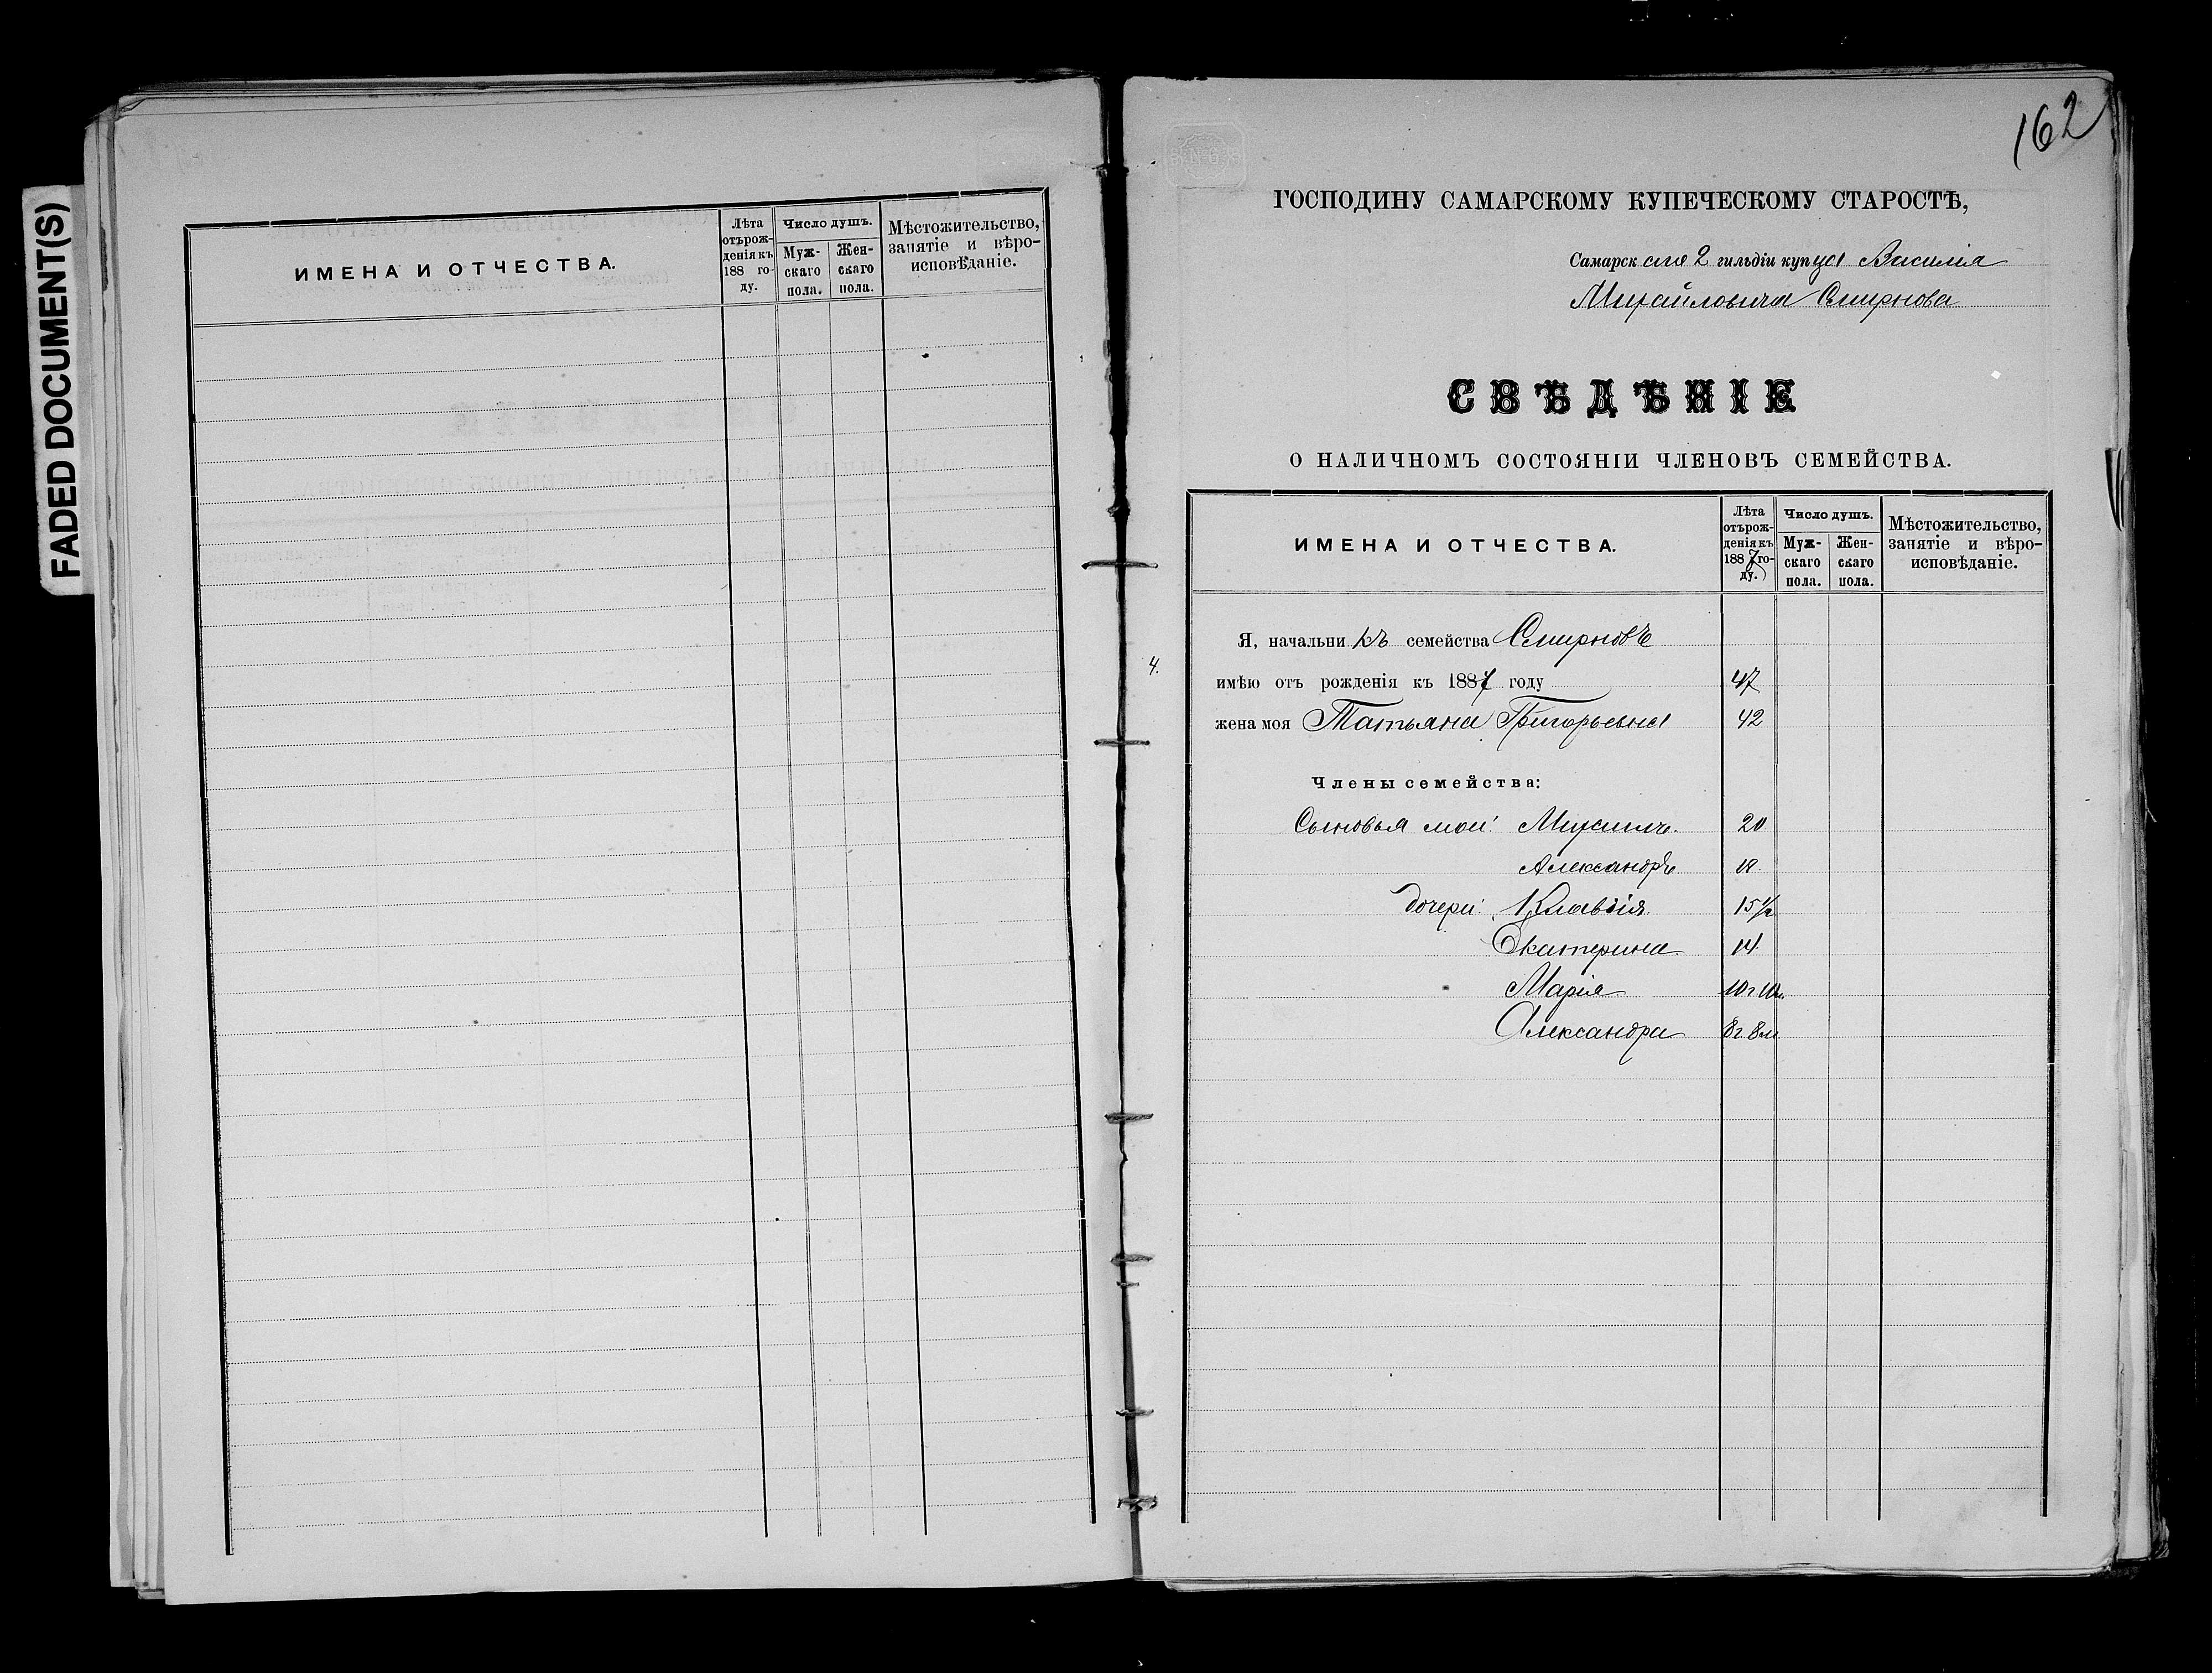 FADED DOCUMENT(S)
ИМЕНА И ОТЧЕСТВА.
Лѣта отърож-денія къ 188 го-ду.
Число душъ.
Муж-скаго пола.
Жен-скаго пола.
Мѣстожительство, занятіе и вѣро-исповѣданіе.
162
ГОСПОДИНУ САМАРСКОМУ КУПЕЧЕСКОМУ СТАРОСТѢ,
Самарскаго 2 гильдіи купца Василія
Михайловича Смирнова
СВѢДѢНІЕ
О НАЛИЧНОМЪ СОСТОЯНІИ ЧЛЕНОВЪ СЕМЕЙСТВА.
ИМЕНА И ОТЧЕСТВА.
Лѣта отърож-денія къ 1887 го-ду.
Число душъ.
Муж-скаго пола.
Жен-скаго пола.
Мѣстожительство, занятіе и вѣро-исповѣданіе.
Я, начальникъ семейства Смирновъ
4.
имѣю отъ рожденія къ 1887 году 47
жена моя Татьяна Григорьевна 42
Члены семейства:
Сыновья мои: Михаилъ. 20
Александръ
дочери: Клавдія 15 1/2
Екатерина 14
Марія 10 г 10 м.
Александра 8 г. 8 м